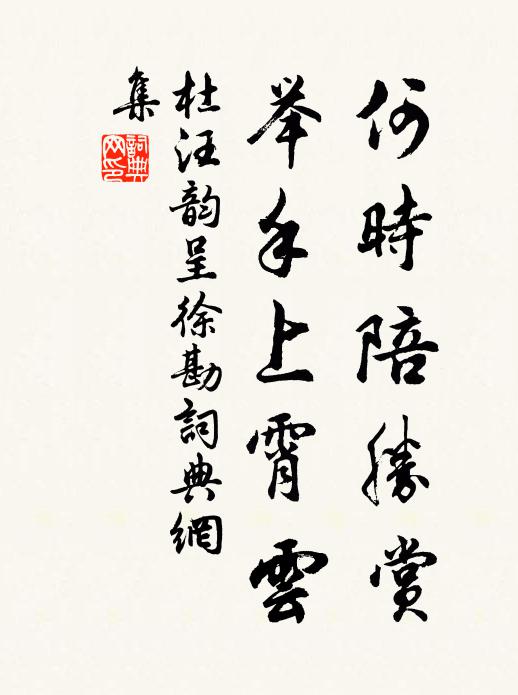 何時陪勝賞
举手上霄雲
杜汪韵呈徐勘詞典網
集
詞典网印